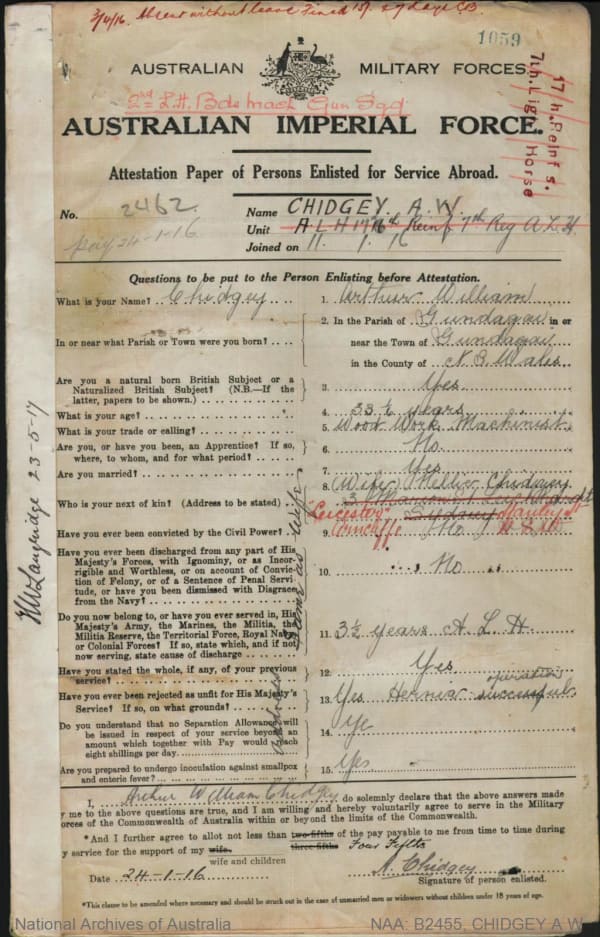 3/4/16. Absent without leave Fined 15/. 27 days C.B.
1059
AUSTRALIAN MILITARY FORCES.
2nd L.H. Bde Mach Gun Sqd
17th Reinf s.
7th Light Horse
AUSTRALIAN IMPERIAL FORCE.
Attestation Paper of Persons Enlisted for Service Abroad.
No. 2462
Name CHIDGEY. A. W.
Unit A L H 17/16th Reinf 7th Reg A L H
pay 24-1-16
Joined on 11. 1. 16
Questions to be put to the Person Enlisting before Attestation.
What is your Name? Chidgey
1. Arthur William
In or near what Parish or Town were you born?
2. In the Parish of Gundagai in or
near the Town of Gundagai
in the County of N. S. Wales
Are you a natural born British Subject or a
Naturalized British Subject? (N.B.—If the
latter, papers to be shown.)
3. Yes
What is your age?
4. 33½ years
What is your trade or calling?
5. Wood Work Machinist
Are you, or have you been, an Apprentice? If so,
where, to whom, and for what period?
6. No
Are you married?
7. Yes
Who is your next of kin? (Address to be stated)
8. (Wife) Nellie Chidgey
3 Marion St Leichhardt
"Leicester" Sydney Manley St
Have you ever been convicted by the Civil Power?
9. No
N S W
Have you ever been discharged from any part of His
Majesty's Forces, with Ignominy, or as Incor-
rigible and Worthless, or on account of Convic-
tion of Felony, or of a Sentence of Penal Servi-
tude, or have you been Dismissed with Disgrace
from the Navy?
10. No
Do you now belong to, or have you ever served in, His
Majesty's Army, the Marines, the Militia, the
Militia Reserve, the Territorial Force, Royal Navy,
or Colonial Forces? If so, state which, and if not
now serving, state cause of discharge
11. 3½ years A L H
Have you stated the whole, if any, of your previous
service?
12. Yes
Have you ever been rejected as unfit for His Majesty's
Service? If so, on what grounds?
13. Yes Hernia operation successful
Do you understand that no Separation Allowance will
be issued in respect of your service beyond an
amount which together with Pay would reach
eight shillings per day.
14. Ye
Are you prepared to undergo inoculation against smallpox
and enteric fever?
15. Yes
23-5-17
I, Arthur William Chidgey do solemnly declare that the above answers made
y me to the above questions are true, and I am willing and hereby voluntarily agree to serve in the Military
orces of the Commonwealth of Australia within or beyond the limits of the Commonwealth.
*And I further agree to allot not less than two-fifths of the pay payable to me from time to time during
three-fifths Four Fifths
y service for the support of my wife.
wife and children
Date 24-1-16
A. Chidgey
Signature of person enlisted.
*This clause to be amended where necessary and should be struck out in the case of unmarried men or widowers without children under 18 years of age.
National Archives of Australia
NAA: B2455, CHIDGEY A W